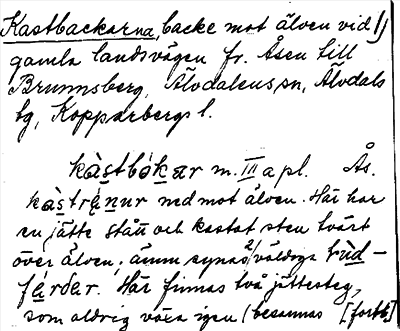 Kastbackarna, backe mot älven vid 1)
gamla landsvägen fr. Åsen till
Brunnsberg, Älvdalens sn, Älvdals
tg, Kopparbergs l.
kàstbákar m. III a pl. Ås.
kàstrǻnur ned mot älven. Här har
en jätte stått och kastat sten tvärt
över älven; ännu synas 2) väldiga bùd-
fárdar. Här finnas två jättesteg,
som aldrig växa igen (besannas [forts.]